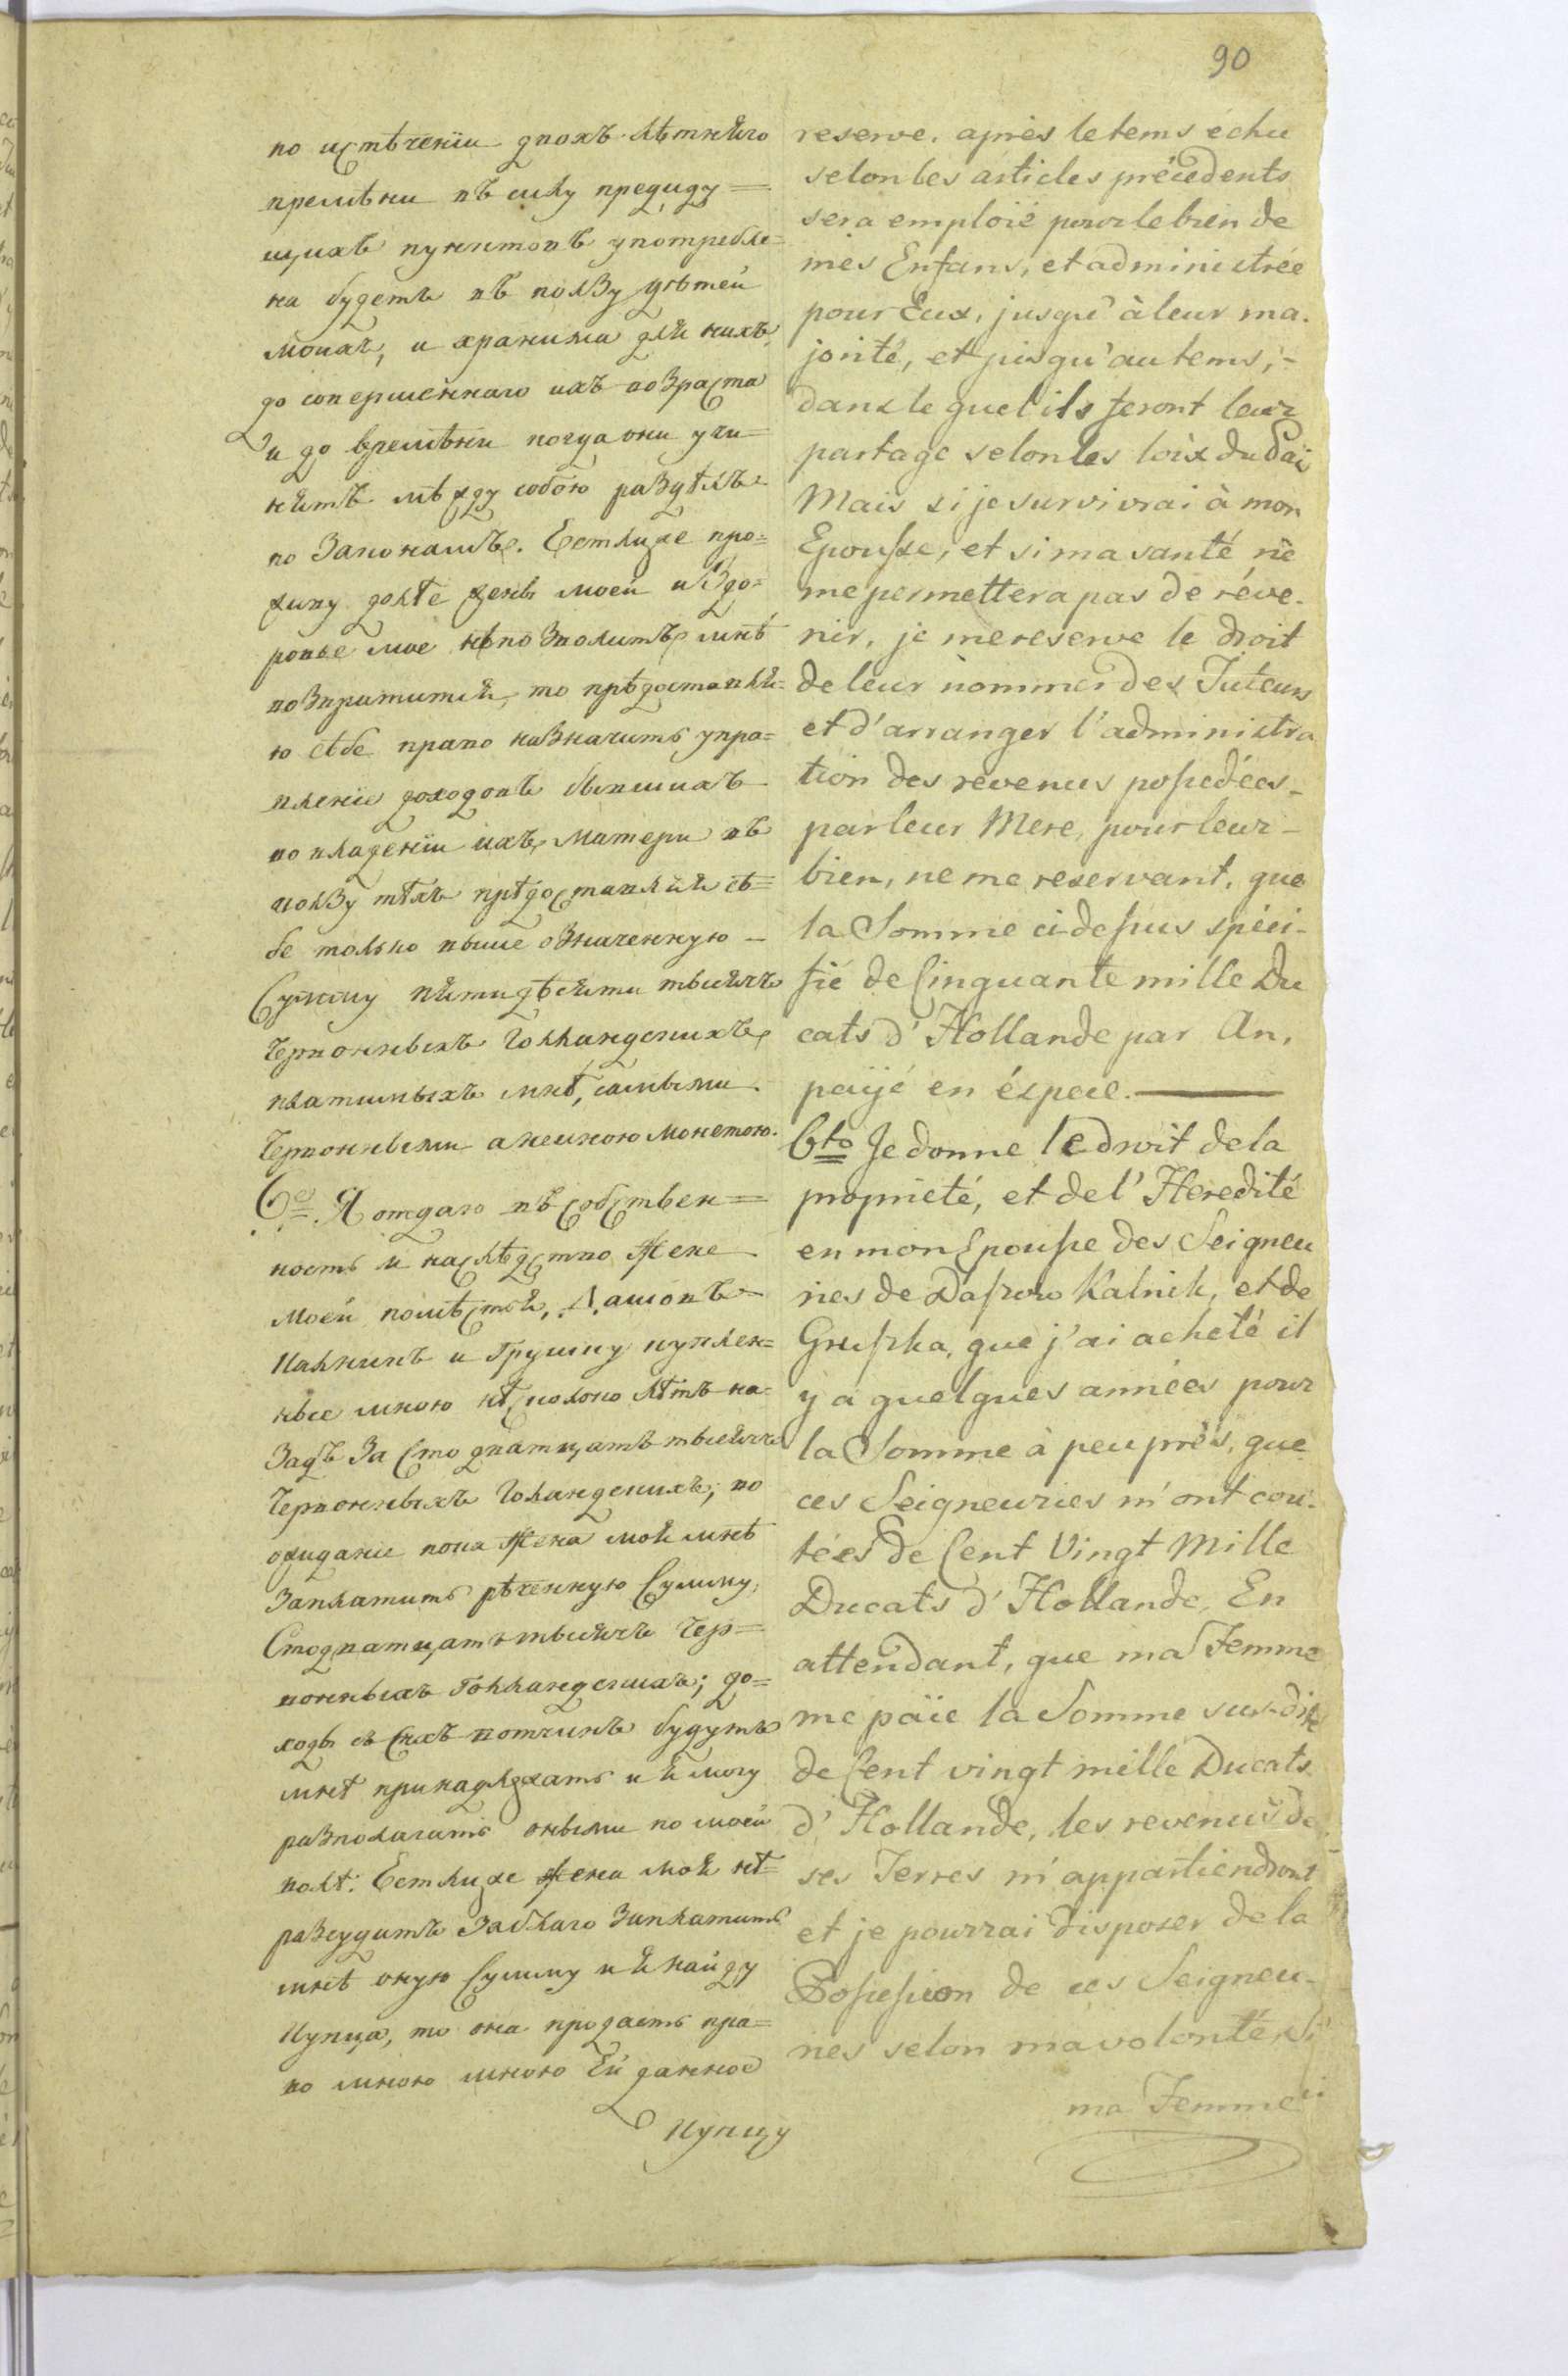 90
по истѣченіи двохъ лѣтняго
премѣни въ силу предиду=
щихъ пунктовъ употребле=
на будетъ въ ползу дѣтей
моихъ, и хранима для нихъ,
до совершеннаго ихъ возраста
и до времѣни когда они учи=
нятъ мѣжду собою раздѣлъ
по законамъ. Естлиже про=
живу долѣе жены моей и здо=
ровье мое не позволитъ мнѣ
возвратится, то прѣдоставля=
ю сѣбе право назначить упра=
вленіе доходовъ бывшихъ
во владеніи ихъ матери въ
ползу тѣхъ прѣдоставляя сѣ=
бе только выше означенную -
Сумму пятидѣсяти тысячъ
Червонныхъ Голландскихъ,
платимыхъ мнѣ, самыми
Червонными а не иною монетою.
6е Я отдаю въ собствен=
ность и наслѣдство жене
моей помѣстья, Дашовъ
Калникъ и Грушку купле=
ные мною нѣсколко лѣтъ на=
задъ за Сто дватцать тысячъ
Червонныхъ Голандскихъ; во
ожидание пока жена моя мнѣ
Заплатитъ рѣченную Сумму,
Стодватцать тысячъ Чер=
вонныхъ Голландскихъ; до=
ходы съ сихъ вотчинъ будутъ
мнѣ принадлѣжать и я могу
разполагать оными по моей
волѣ. Естлиже жена моя нѣ=
разсудитъ Заблаго Заплатить
мнѣ оную Сумму и я найду
Купца, то она продастъ пра=
во мною мною Ей данное
Купцу
reserve. après le tems échu
selon les articles précedents
sera emploié pour le bien de
mes Enfans, et administrée
pour Eux, jusqu' à leur ma.
jorité, et jusqu' au tems, -
dans le quel ils feront leur
partage selon les loix du Païs
Mais si je survivrai à mon
Epousse, et si ma santé ne
me permettera pas de réve-
nir, je me reserve le droit
de leur nommer des Tuteurs
et d'arranger l'administra
tion des revenus possedées -
par leur Mere, pour leur -
bien, ne me reservant, que
la Somme ci-dessus spéci-
fié de Cinquante mille Du
cats d'Hollande par An,
payé en éspece. ———
6to Je donne le droit de la
proprieté, et de l'Heredité
en mon Epousse des Seigneu
ries de Daszow Kalnik, et de
Gruszka, que j'ai acheté il
y a quelques années pour
la Somme à peu près, que
ces Seigneuries m'ont cou-
tées de Cent Vingt Mille
Ducats d'Hollande, En
attendant, que ma Femme
me païe la Somme sus-dite
de Cent vingt mille Ducats
d'Hollande, les revenus de
ses Terres m'appartiendront
et je pourrai disposer de la
Possession de ces Seigneu-
ries selon ma volonté, Si
ma Femme